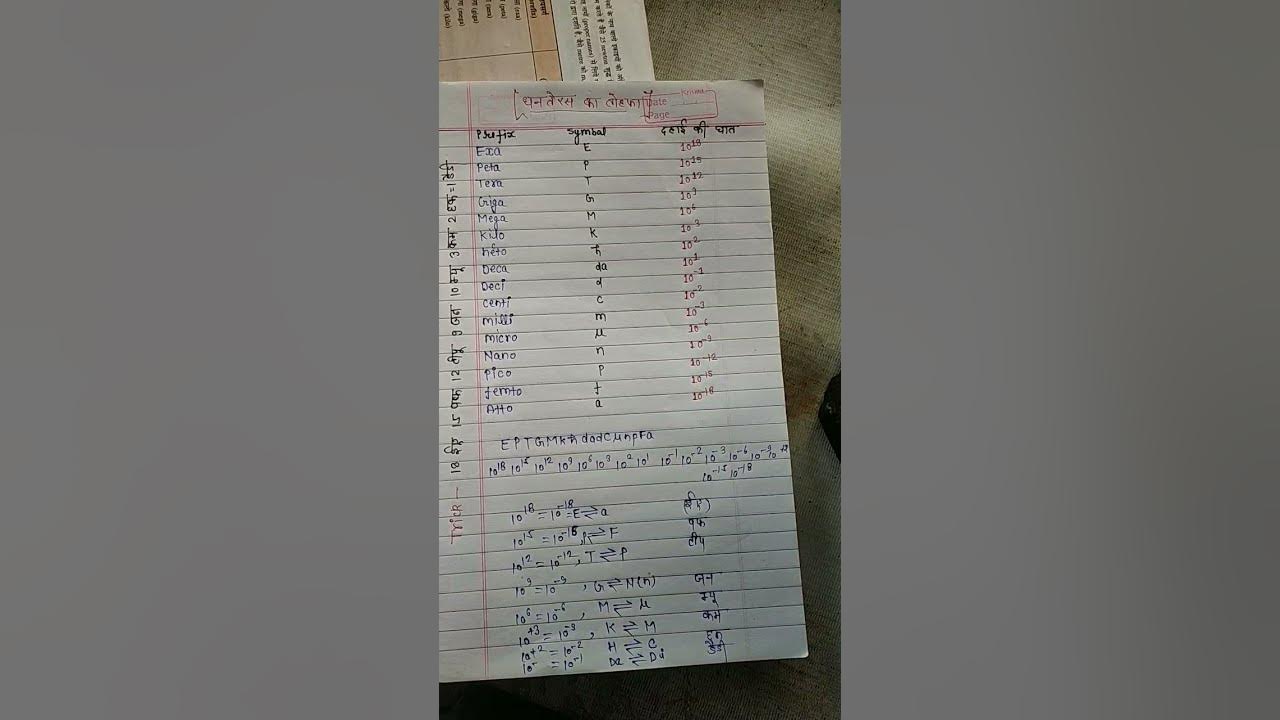 धनतेरस का तोहफा
Date
Page
Prefix symbal दहाई की घात
Exa E 10¹⁸
Peta P 10¹⁵
Tera T 10¹²
Giga G 10⁹
Mega M 10⁶
Kilo K 10³
heto h 10²
Deca da 10¹
Deci d 10⁻¹
centi c 10⁻²
milli m 10⁻³
micro μ 10⁻⁶
Nano n 10⁻⁹
Pico P 10⁻¹²
femto f 10⁻¹⁵
Atto a 10⁻¹⁸
EPTGMkh dadcμnpFa
10¹⁸ 10¹⁵ 10¹² 10⁹ 10⁶ 10³ 10² 10¹ 10⁻¹ 10⁻² 10⁻³ 10⁻⁶ 10⁻⁹ 10⁻¹²
10⁻¹⁵ 10⁻¹⁸
10¹⁸ = 10⁻¹⁸ = E ⇌ a
10¹⁵ = 10⁻¹⁵, P ⇌ F पफ
10¹² = 10⁻¹², T ⇌ P टीप
10⁹ = 10⁻⁹, G ⇌ N(n) जन
10⁶ = 10⁻⁶, M ⇌ μ म्यू
10⁺³ = 10⁻³, K ⇌ M कम
10⁺² = 10⁻² H ⇌ C
10⁻ = 10⁻¹ Da ⇌ Di
Trick — 18 15 पफ 12 टीपू 9 जन 10 म्यू 3 कम 2 हक = 1